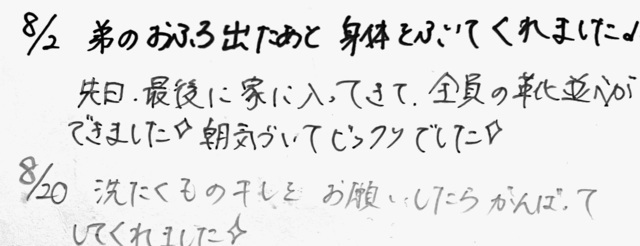 8/2 弟のおふろ出たあと身体をふいてくれました♪
先日、最後に家に入ってきて、全員の靴並べが
できました✧朝気づいてビックリでした✧
8/20 洗たくもの干しをお願いしたらがんばって
してくれました✧